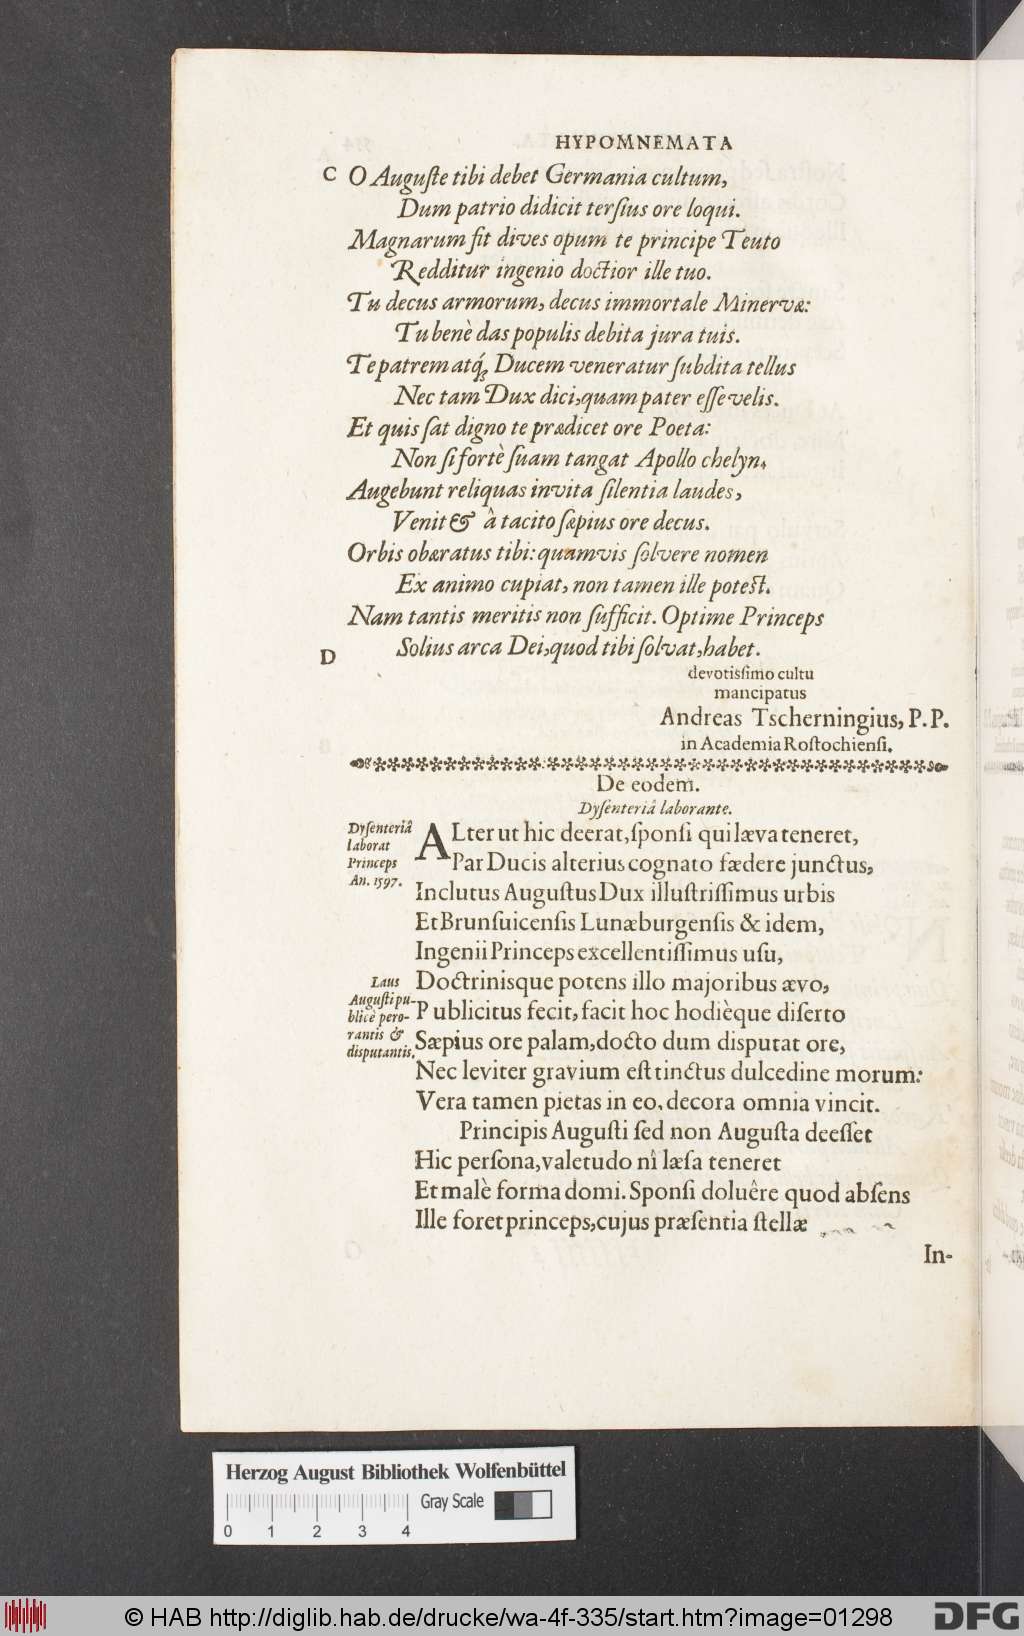 HYPOMNEMATA
C O Auguſte tibi debet Germania cultum,
Dum patrio didicit terſius ore loqui.
Magnarum fit dives opum te principe Teuto
Redditur ingenio doctior ille tuo.
Tu decus armorum, decus immortale Minervæ:
Tu benè das populis debita jura tuis.
Te patrem atq́; Ducem veneratur ſubdita tellus
Nec tam Dux dici, quam pater eſſe velis.
Et quis ſat digno te prædicet ore Poeta:
Non ſi fortè ſuam tangat Apollo chelyn,
Augebunt reliquas invita ſilentia laudes,
Venit & à tacito ſæpius ore decus.
Orbis obæratus tibi: quamvis ſolvere nomen
Ex animo cupiat, non tamen ille poteſt.
Nam tantis meritis non ſufficit. Optime Princeps
D Solius arca Dei, quod tibi ſolvat, habet.
devotiſſimo cultu
mancipatus
Andreas Tscherningius, P. P.
in Academia Roſtochienſi.
De eodem.
Dyſenteriâ laborante.
Dyſenteriâ
laborat
Princeps
An. 1597.
ALter ut hic deerat, ſponſi qui læva teneret,
Par Ducis alterius cognato fædere junctus,
Inclutus Auguſtus Dux illuſtriſſimus urbis
Et Brunſuicenſis Lunæburgenſis & idem,
Ingenii Princeps excellentiſſimus uſu,
Laus
Auguſti pu-
blicè pero-
rantis &
disputantis.
Doctrinisque potens illo majoribus ævo,
Publicitus fecit, facit hoc hodièque diſerto
Sæpius ore palam, docto dum disputat ore,
Nec leviter gravium eſt tinctus dulcedine morum:
Vera tamen pietas in eo, decora omnia vincit.
Principis Auguſti ſed non Auguſta deeſſet
Hic perſona, valetudo nî læſa teneret
Et malè forma domi. Sponſi doluêre quod abſens
Ille foret princeps, cujus præſentia ſtellæ
In-
Herzog August Bibliothek Wolfenbüttel
Gray Scale
0 1 2 3 4
© HAB http://diglib.hab.de/drucke/wa-4f-335/start.htm?image=01298
DFG